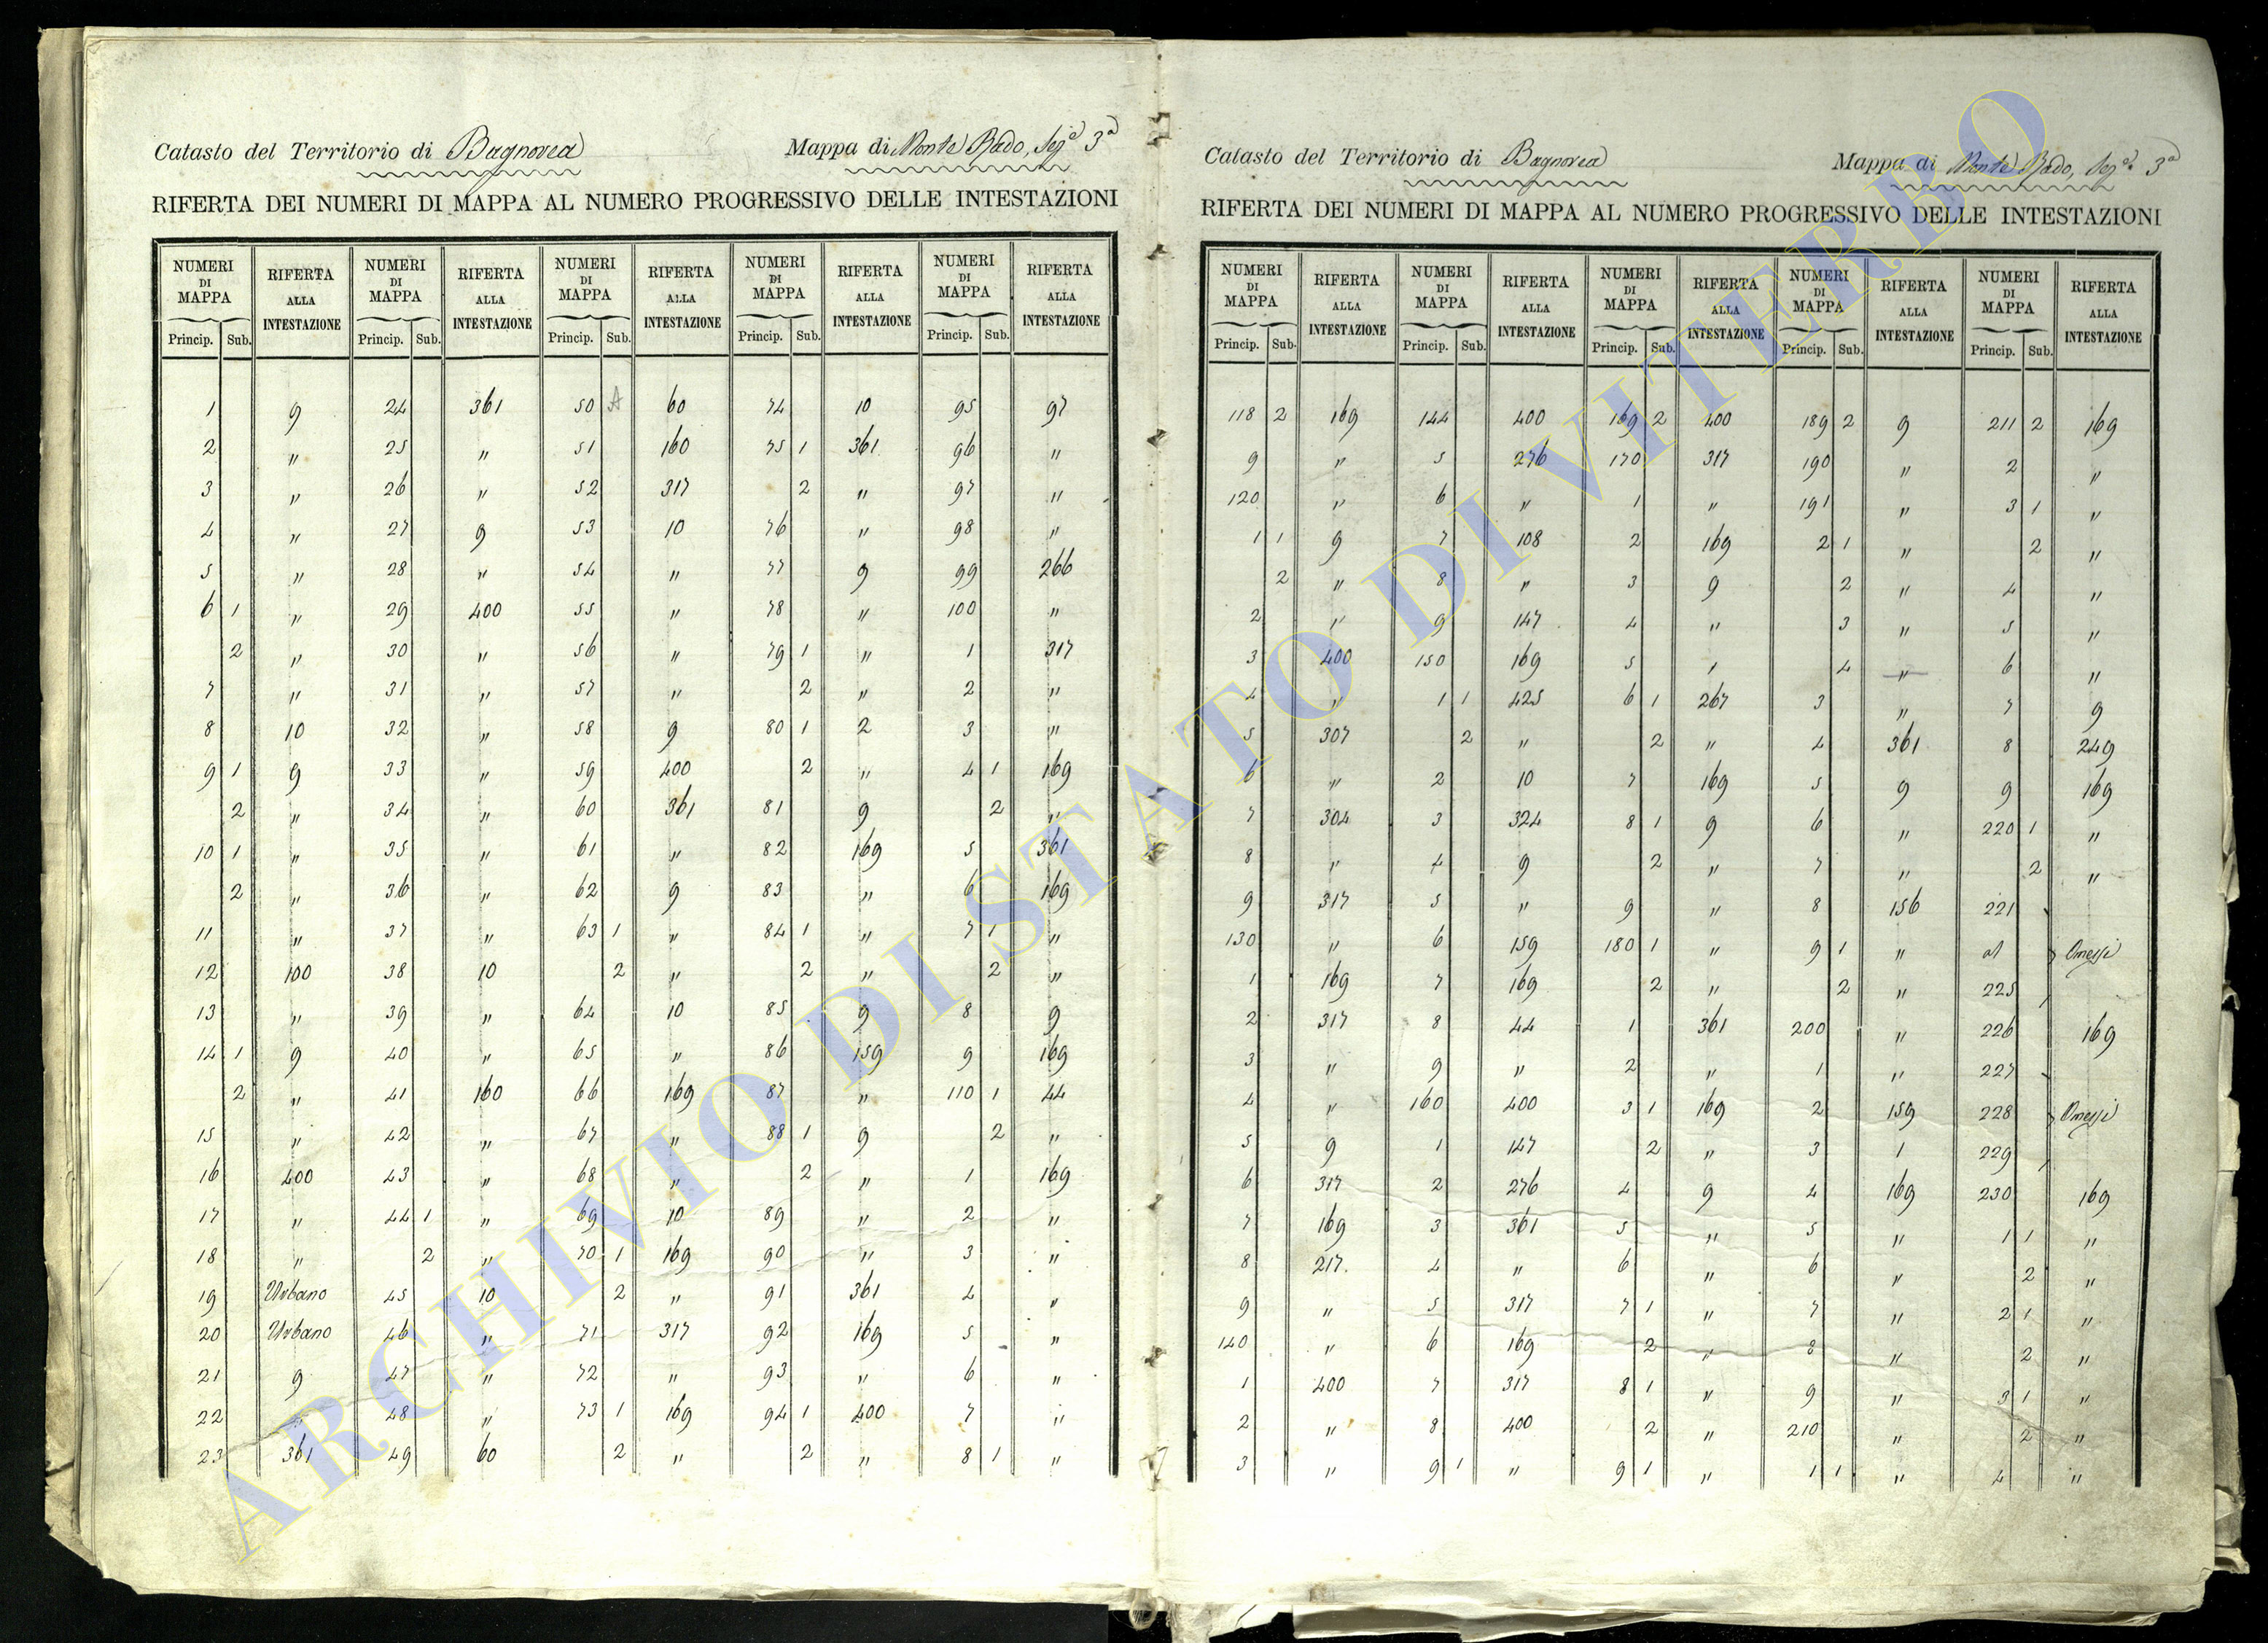 Catasto del Territorio di Bagnorea Mappa di Monte Rado, Seg.e 3a
RIFERTA DEI NUMERI DI MAPPA AL NUMERO PROGRESSIVO DELLE INTESTAZIONI
NUMERI DI MAPPA RIFERTA ALLA INTESTAZIONE NUMERI DI MAPPA RIFERTA ALLA INTESTAZIONE NUMERI DI MAPPA RIFERTA ALLA INTESTAZIONE NUMERI DI MAPPA RIFERTA ALLA INTESTAZIONE NUMERI DI MAPPA RIFERTA ALLA INTESTAZIONE
Princip. Sub. Princip. Sub. Princip. Sub. Princip. Sub. Princip. Sub.
1 9 24 361 50 A 60 74 10 95 97
2 " 25 " 51 160 75 1 361 96 "
3 " 26 " 52 317 2 " 97 "
4 " 27 9 53 10 76 " 98 "
5 " 28 " 54 " 77 9 99 266
6 1 " 29 400 55 " 78 " 100 "
2 " 30 " 56 " 79 1 " 1 317
7 " 31 " 57 " 2 " 2 "
8 10 32 " 58 9 80 1 2 3 "
9 1 9 33 " 59 400 2 " 4 1 169
2 " 34 " 60 361 81 9 2 "
10 1 " 35 " 61 " 82 169 5 361
2 " 36 " 62 9 83 " 6 169
11 " 37 " 63 1 " 84 1 " 7 1 "
12 100 38 10 2 " 2 " 2 "
13 " 39 " 64 10 85 9 8 9
14 1 9 40 " 65 " 86 159 9 169
2 " 41 160 66 169 87 " 110 1 44
15 " 42 " 67 " 88 1 9 2 "
16 400 43 " 68 " 2 " 1 169
17 " 44 1 " 69 10 89 " 2 "
18 " 2 " 70 1 169 90 " 3 "
19 Urbano 45 10 2 " 91 361 4 "
20 Urbano 46 " 71 317 92 169 5 "
21 9 47 " 72 " 93 " 6 "
22 " 48 " 73 1 169 94 1 400 7 "
23 361 49 60 2 " 2 " 8 1 "
Catasto del Territorio di Bagnorea Mappa di Monte Rado, Seg.e 3a
RIFERTA DEI NUMERI DI MAPPA AL NUMERO PROGRESSIVO DELLE INTESTAZIONI
NUMERI DI MAPPA RIFERTA ALLA INTESTAZIONE NUMERI DI MAPPA RIFERTA ALLA INTESTAZIONE NUMERI DI MAPPA RIFERTA ALLA INTESTAZIONE NUMERI DI MAPPA RIFERTA ALLA INTESTAZIONE NUMERI DI MAPPA RIFERTA ALLA INTESTAZIONE
Princip. Sub. Princip. Sub. Princip. Sub. Princip. Sub. Princip. Sub.
118 2 169 144 400 169 2 400 189 2 9 211 2 169
9 " 5 276 170 317 190 " 2 "
120 " 6 " 1 " 191 " 3 1 "
1 1 9 7 108 2 169 2 1 " 2 "
2 " 8 " 3 9 2 " 4 "
2 " 9 147 4 " 3 " 5 "
3 400 150 169 5 1 4 " 6 "
4 " 1 1 425 6 1 267 3 " 7 9
5 307 2 " 2 " 4 361 8 249
6 " 2 10 7 169 5 9 9 169
7 304 3 324 8 1 9 6 " 220 1 "
8 " 4 9 2 " 7 " 2 "
9 317 5 " 9 " 8 156 221
130 " 6 159 180 1 " 9 1 " al Omessi
1 169 7 169 2 " 2 " 225
2 317 8 44 1 361 200 " 226 169
3 " 9 " 2 " 1 " 227
4 " 160 400 3 1 169 2 159 228 Omessi
5 9 1 147 2 " 3 1 229
6 317 2 276 4 9 4 169 230 169
7 169 3 361 5 " 5 " 1 1 "
8 217 4 " 6 " 6 " 2 "
9 " 5 317 7 1 " 7 " 2 1 "
140 " 6 169 2 " 8 " 2 "
1 400 7 317 8 1 " 9 " 3 1 "
2 " 8 400 2 " 210 " 2 "
3 " 9 1 " 9 1 " 1 1 " 4 "
ARCHIVIO DI STATO DI VITERBO